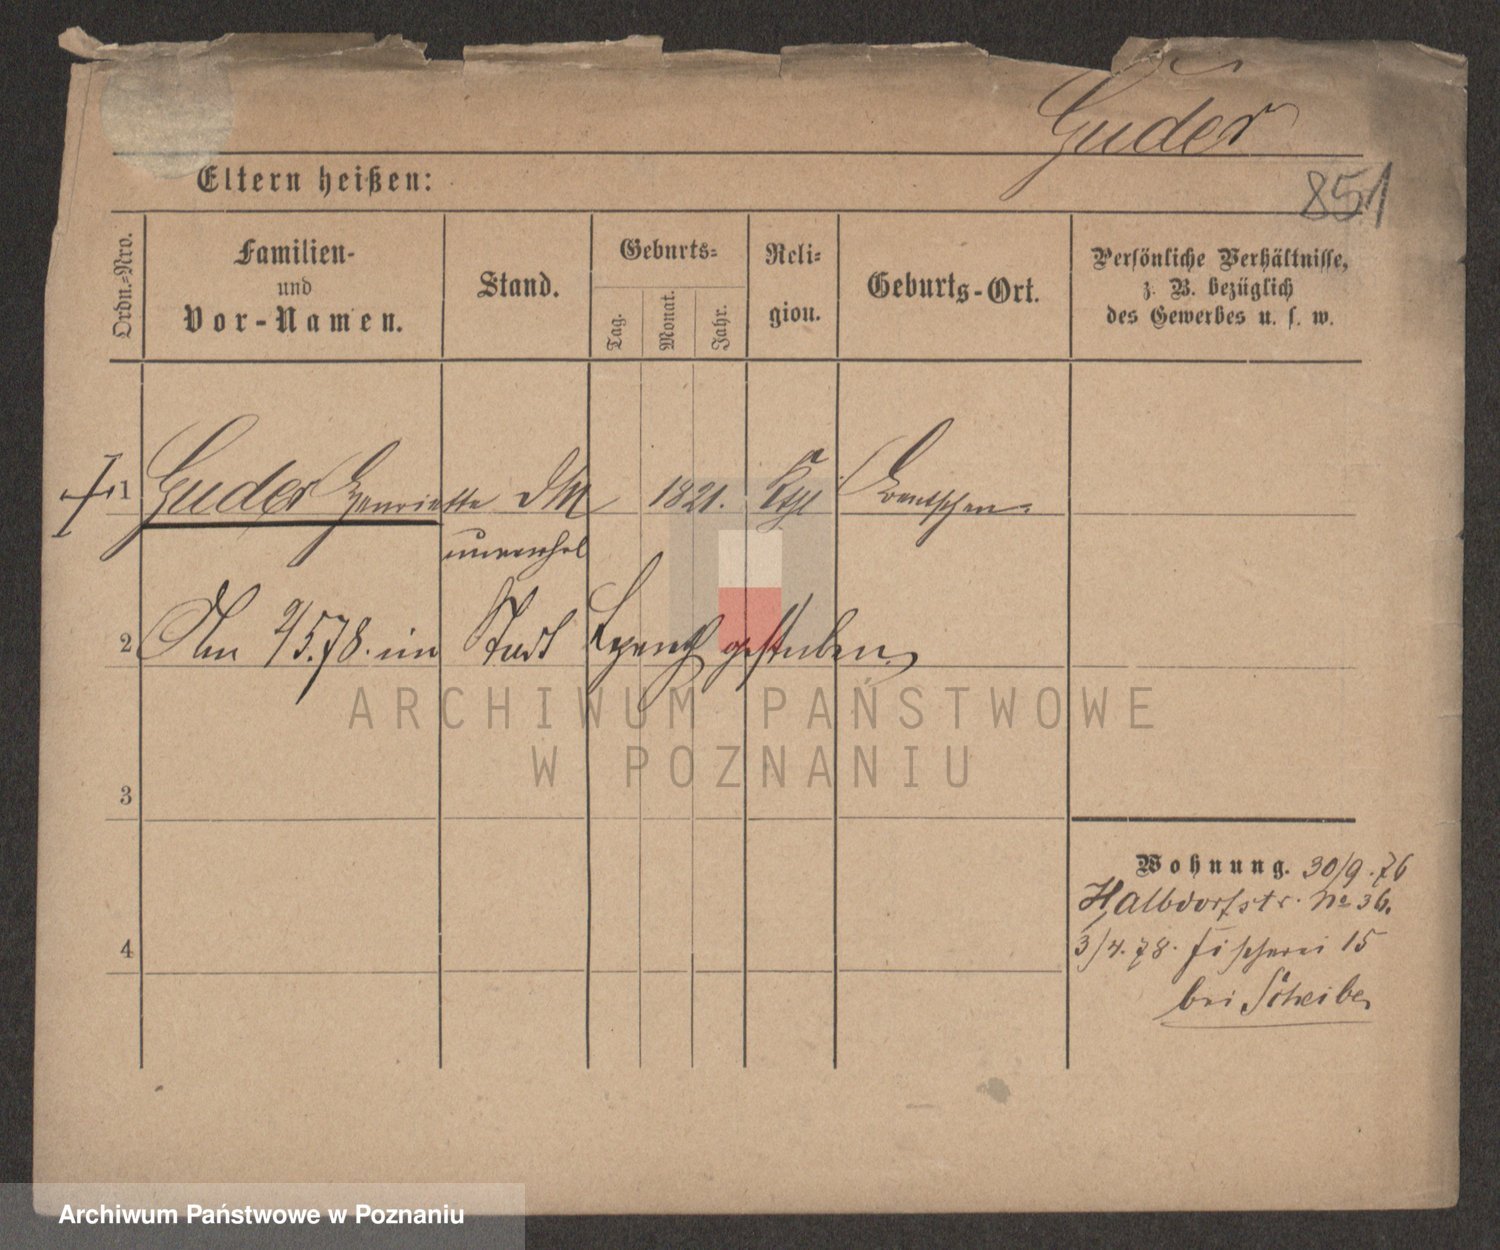 Guder
851
Eltern heißen:
Ordn.-Nro.
Familien-
und
Vor-Namen.
Stand.
Geburts-
Tag.
Monat.
Jahr.
Reli-
gion.
Geburts-Ort.
Persönliche Verhältnisse,
z. B. bezüglich
des Gewerbes u. s. w.
1 Guder Henriette 1821. Bentschen
2 Am 2/5.78. im Stadt gestorben.
3
4
Wohnung. 30/9.76
Halbdorfstr. No 36.
3/4.78. Fischerei 15
bei Scheibe
ARCHIWUM PAŃSTWOWE
W POZNANIU
Archiwum Państwowe w Poznaniu